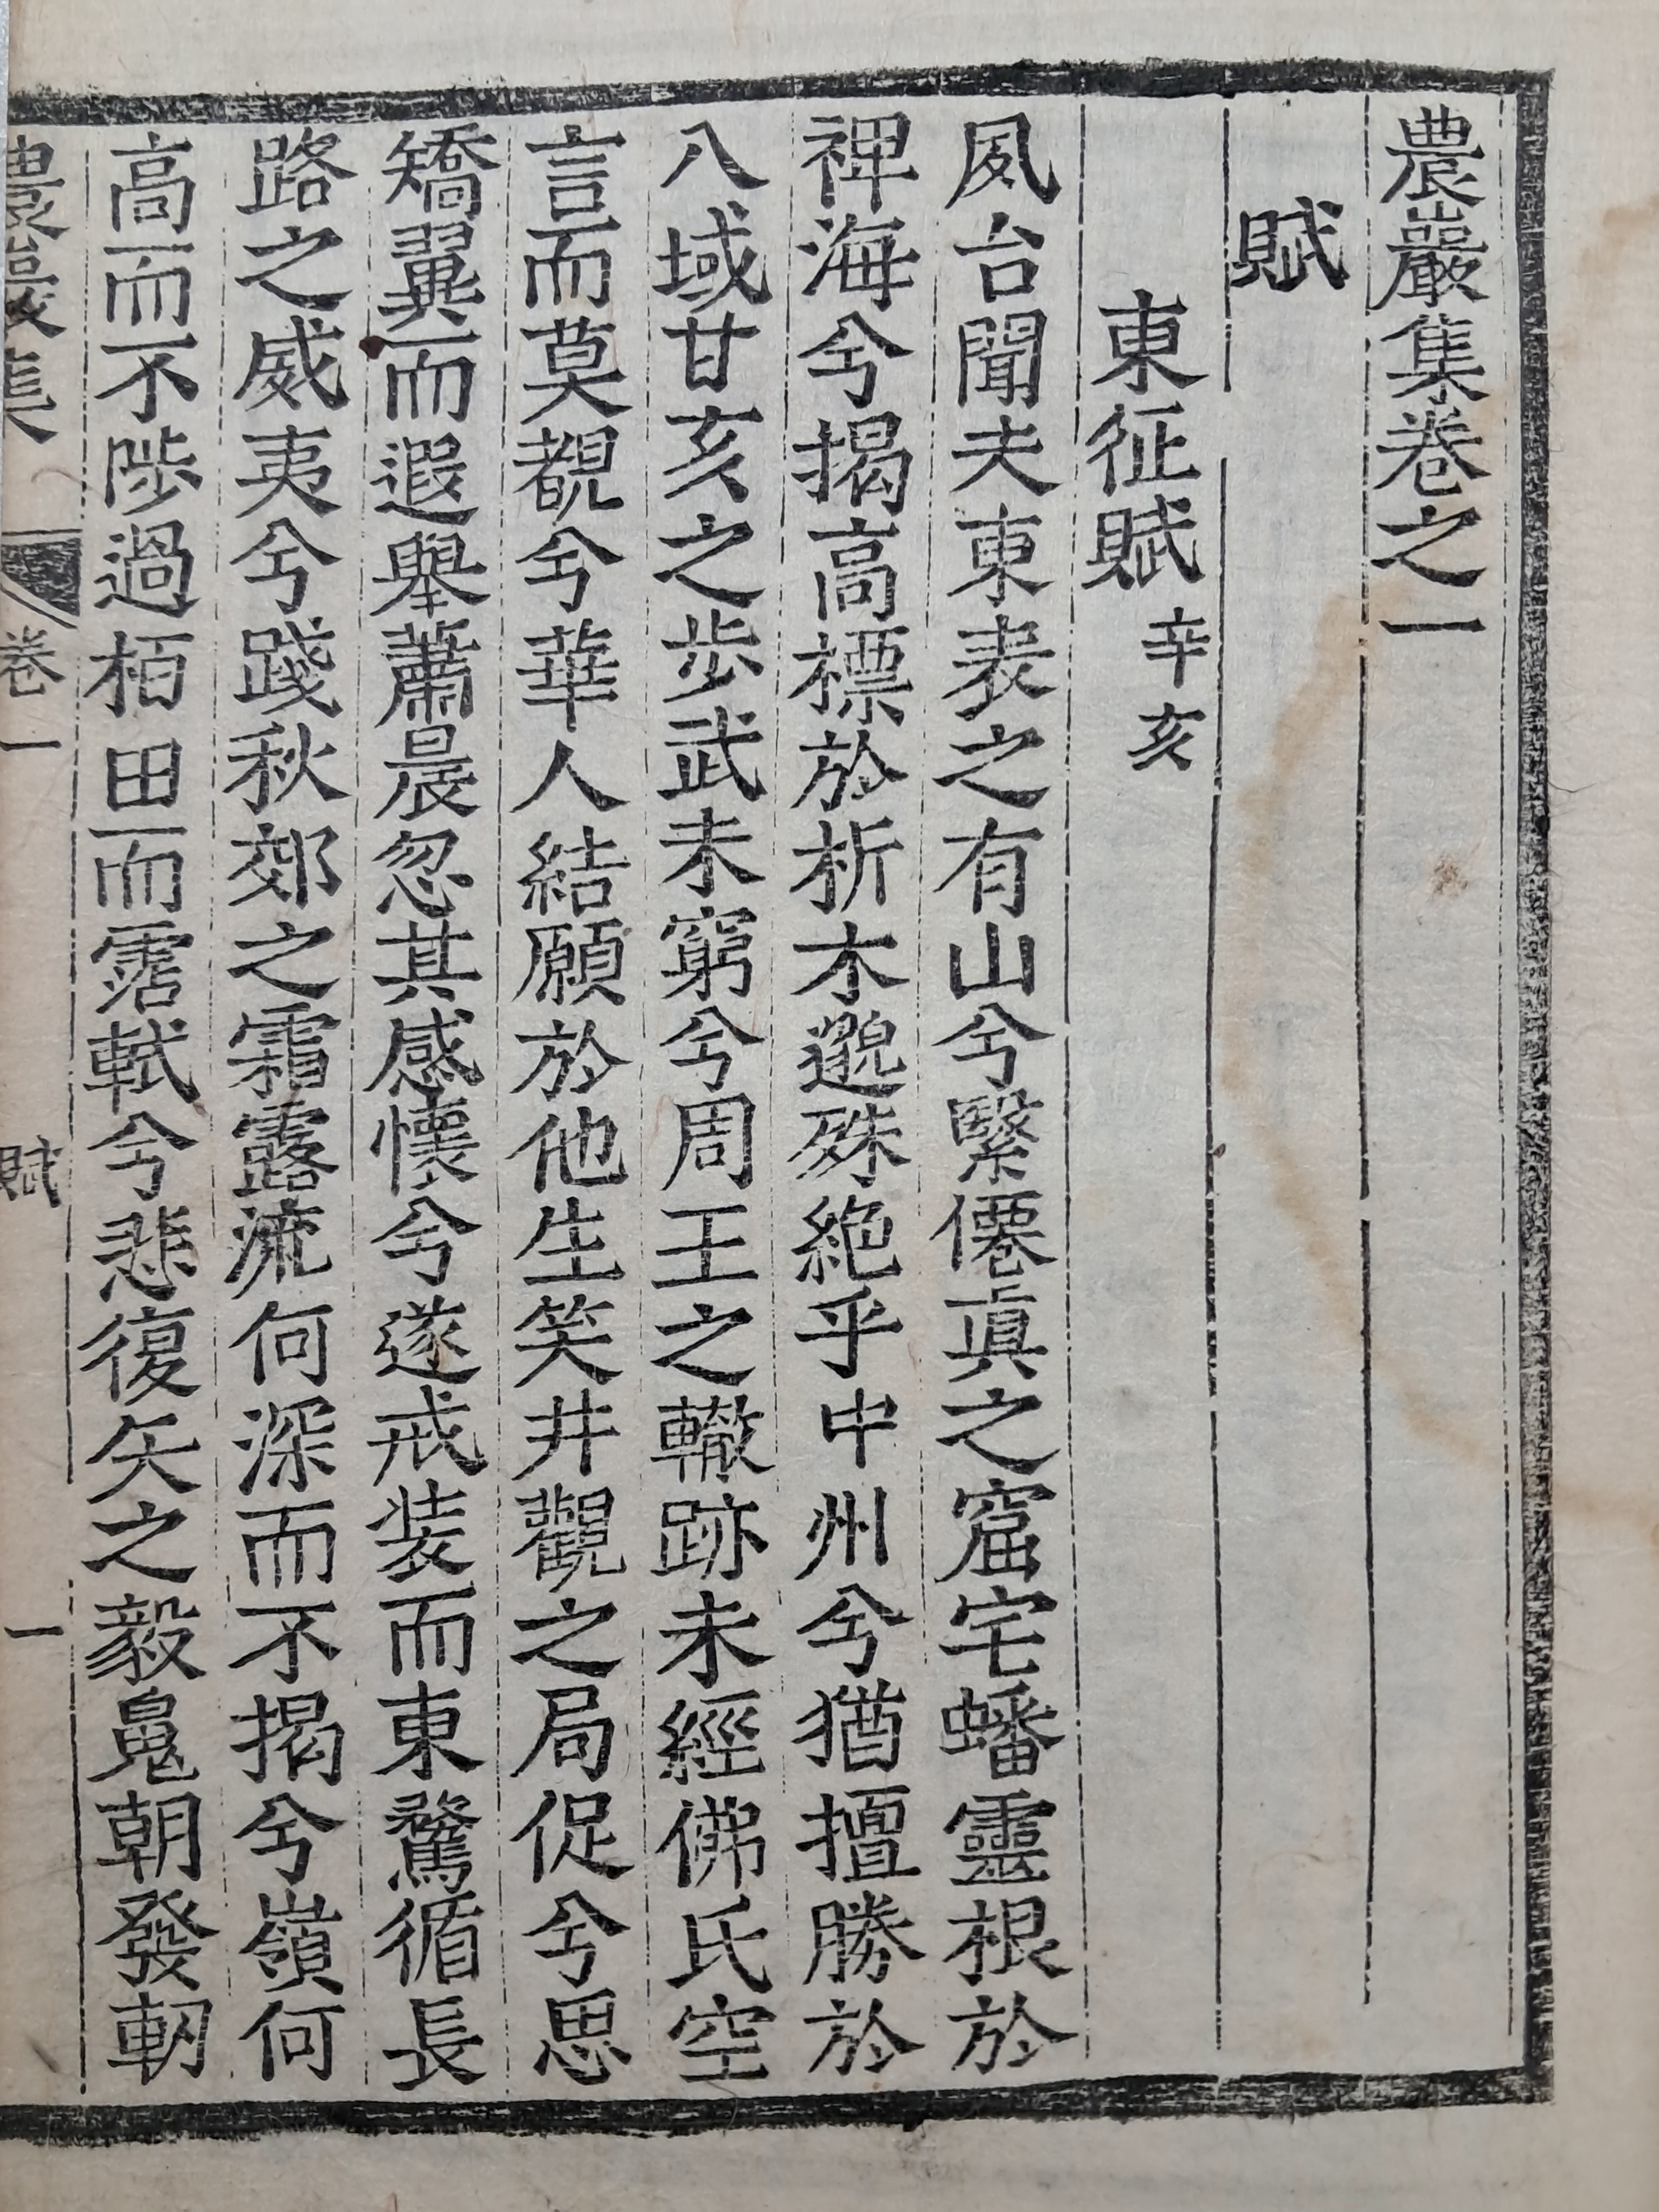 農巖集卷之一
賦
東征賦 辛亥
夙台聞夫東表之有山兮繄僊眞之窟宅蟠靈根於
裨海兮揭高標於析木邈殊絶乎中州兮猶擅勝於
八域甘亥之步武未窮兮周王之轍跡未經佛氏空
言而莫覩兮華人結願於他生笑井觀之局促兮思
矯翼而遐擧蕭晨忽其感懷兮遂戒装而東騖循長
路之威夷兮踐秋郊之霜露流何深而不揭兮嶺何
高而不陟過栢田而霑軾兮悲復矢之毅鬼朝發軔
農巖集 卷一 賦 一